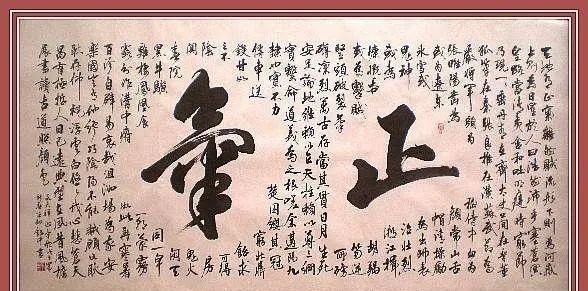 天地有正氣雜然賦流形下則為河嶽
上則為日星於人曰浩然沛乎塞蒼冥
皇路當清夷含和吐明庭時窮節
乃現一一垂丹青在齊太史簡在晉董
狐筆在秦張良椎在漢蘇武節為
嚴將軍頭為嵇侍中血為
張睢陽齒為顏常山舌
或為遼東帽清操勵
冰雪或為出師表
鬼神泣壯烈
或為渡江楫
慷慨吞胡羯
或為擊賊笏逆
豎頭破裂是氣所磅
正
礴凜烈萬古存當其貫日月生死
安足論地維賴以立天柱賴以尊三綱
實繫命道義為之根嗟余遘陽九
隸也實不力楚囚纓其冠
傳車送窮北鼎
鑊甘如飴求
之不可得
陰房
闃鬼火
春院閟天
黑牛驥同一皁
氣
雞棲鳳凰食一朝蒙霧
露分作溝中瘠如此再寒暑
百沴自辟易哀哉沮洳場為我安
樂國豈有他繆巧陰陽不能賊顧此耿
耿在仰視浮雲白悠悠我心悲蒼天
曷有極哲人日已遠典型在夙昔風檐
展書讀古道照顏色
文天祥正氣歌